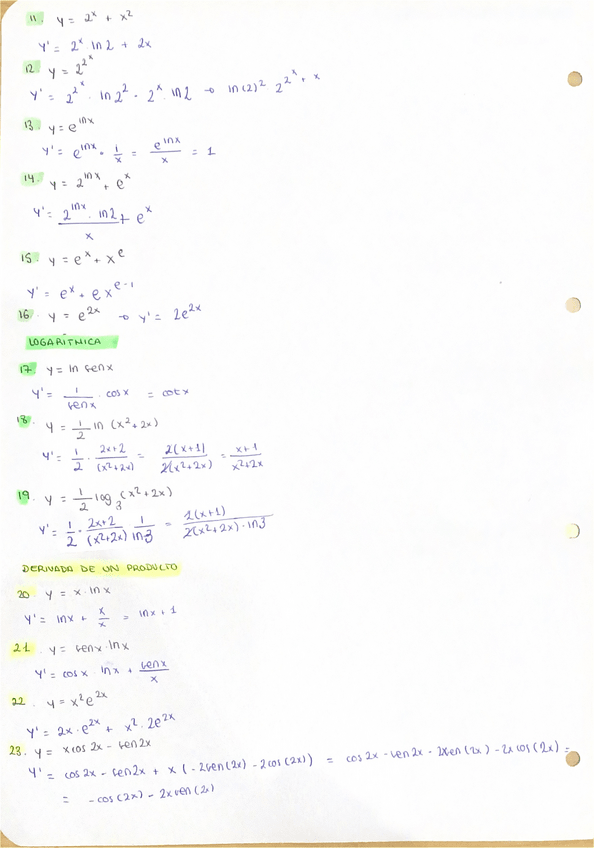 11. y = 2^x + x^2
y' = 2^x · ln 2 + 2x
12. y = 2^2^x
y' = 2^2^x · ln 2^2 · 2^x · ln 2 → ln(2)^2 2^2^x + x
13. y = e^lnx
y' = e^lnx · 1/x = e^lnx/x = 1
14. y = 2^lnx + e^x
y' = 2^lnx · ln2/x + e^x
15. y = e^x + x^e
y' = e^x + e x^e-1
16. y = e^2x → y' = 2e^2x
LOGARÍTMICA
17. y = ln sen x
y' = 1/sen x · cos x = cot x
18. y = 1/2 ln (x^2+2x)
y' = 1/2 · 2x+2/(x^2+2x) = 2(x+1)/2(x^2+2x) = x+1/x^2+2x
19. y = 1/2 log_3 (x^2+2x)
y' = 1/2 · 2x+2/(x^2+2x) 1/ln3 = 2(x+1)/2(x^2+2x)·ln3
DERIVADA DE UN PRODUCTO
20. y = x·lnx
y' = lnx + x/x = lnx + 1
21. y = senx·lnx
y' = cosx · lnx + senx/x
22. y = x^2 e^2x
y' = 2x·e^2x + x^2·2e^2x
23. y = xcos 2x - sen2x
y' = cos 2x - sen2x + x (-2sen(2x) - 2cos(2x)) = cos 2x - sen 2x - 2xsen(2x) - 2x cos(2x) =
= -cos(2x) - 2x sen(2x)